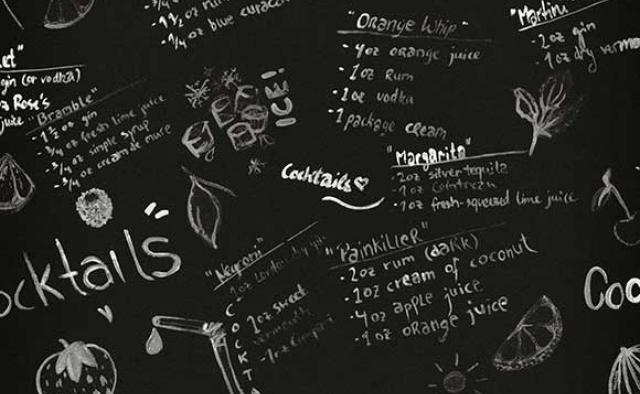 1½ oz
¼ oz blue curacao
"Orange Whip"
4oz orange juice
1oz Rum
1oz vodka
1 package cream
"Martini
2oz gin
1oz dry verm
et"
gin (or vodka)
Rose's
juice
"Bramble"
1½ oz gin
¾ oz fresh lime juice
¼ oz simple syrup
¾ oz creme de mure
ICE!
Cocktails
"Margarita"
2oz silver tequila
1oz Cointreau
1oz fresh-squeezed lime juice
ocktails
"Negroni"
1oz London dry gin
1oz sweet
vermouth
1oz Campari
COCKT
"Painkiller"
2oz rum (dark)
1oz cream of coconut
4oz apple juice
1oz orange juice
Coc